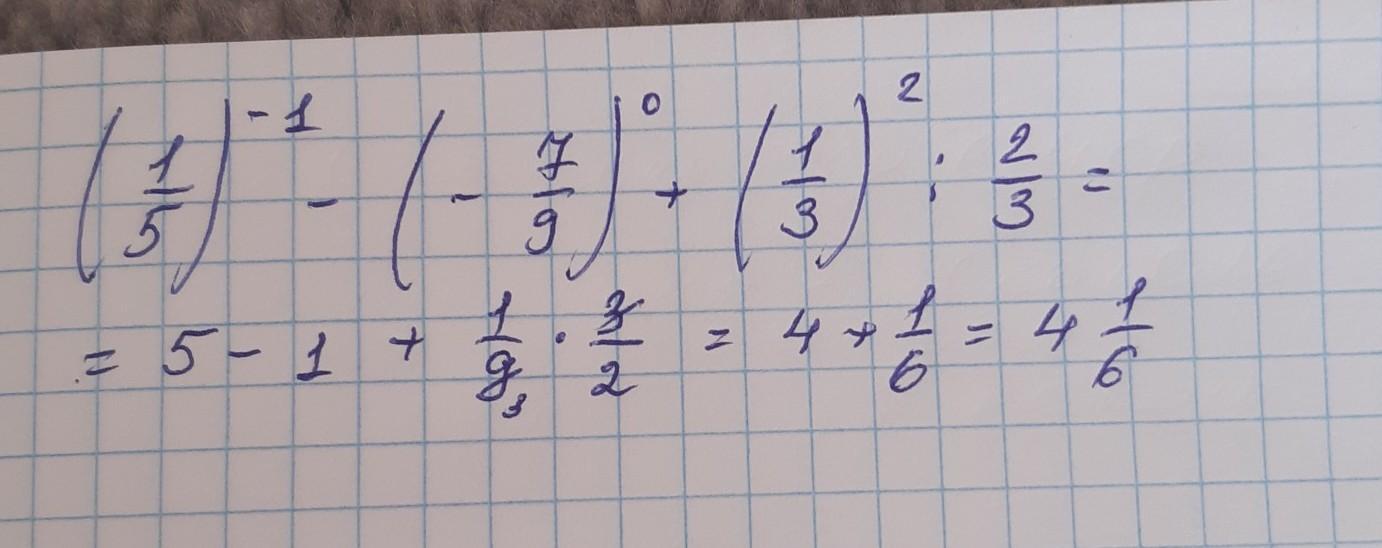 (1/5)^-1 - (- 7/9)^0 + (1/3)^2 : 2/3 =
= 5 - 1 + 1/9 3 · 3/2 = 4 + 1/6 = 4 1/6